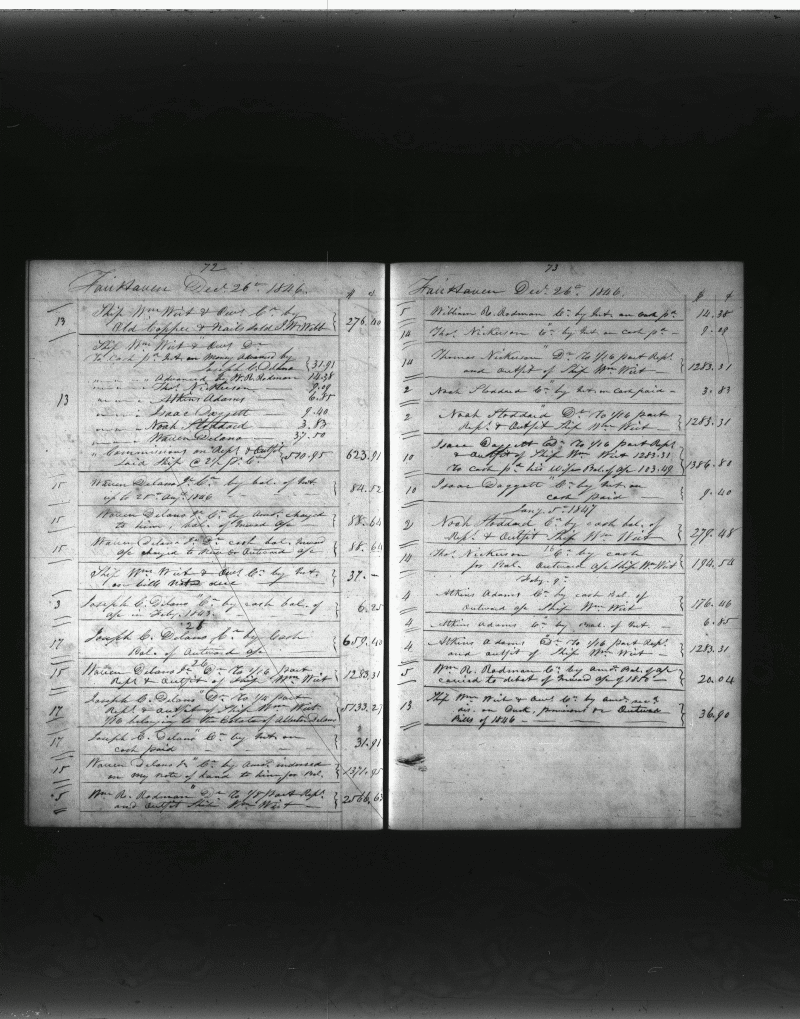 72
Fairhaven Decr 26th 1846.
$ c
13 Ship Wm Wirt & Owrs Cr by
Old Copper & Nails sold J. W. Webb } 276.40
Ship Wm Wirt & Owrs Dr
To cash pd Int. on Money advanced by
Joseph C. Delano } 31.91
" " " Advanced by W. R. Rodman 14.38
" " " Thos. Nickerson 9.09
13 " " " Atkins Adams 6.85
" " " Isaac Daggett 9.40
" " " Noah Stoddard 3.83
" " " Warren Delano 37.50
" Commissions on Repl. & Outfit
said Ship @ 2½ p. Ct. } 510.95 623.91
15 Warren Delano Jr. Cr. by bal. of Int.
up to 25th Augt 1846 } 84.52
15 Warren Delano Jr. Cr. by Amt. charged
to him, bal. of Inward a/c } 88.64
15 Warren Delano Jr. Dr. cash bal. Inward
a/c charged to New & Outward a/c } 88.64
Ship Wm Wirt & Owrs Cr. by Int.
on bills } 37.-
3 Joseph C. Delano Cr. by cash bal. of
a/c in Feby. 1843 } 6.25
" 28
17 Joseph C. Delano Cr. by Cash
Bal. of Outward a/c } 659.40
" 26
15 Warren Delano Jr. Dr. To 1/16 part
Repl. & Outfit of Ship Wm Wirt } 1283.31
17 Joseph C. Delano Dr. To 1/4 part
Repl. & Outfit of Ship Wm Wirt
belonging to the Estate of Delano } 5133.27
17 Joseph C. Delano Cr. by Int. on
cash paid - - - } 31.91
15 Warren Delano Jr. Cr. by Amt. indorsed
on my note of hand to him for Bal. } 1371.95
5 Wm R. Rodman Dr. To 1/8 part Repl.
and outfit Ship Wm Wirt } 2566.63
73
Fairhaven Decr 26th 1846.
$ c
5 William R. Rodman Cr. by Int. on cash pd. 14.38
14 Thos. Nickerson Cr. by Int. on cash pd. - 9.09
14 Thomas Nickerson Dr. To 1/16 part Repl.
and outfit of Ship Wm Wirt - } 1283.31
2 Noah Stoddard Cr. by Int. on Cash paid - 3.83
2 Noah Stoddard Dr. To 1/16 part
Repl. & Outfit Ship Wm Wirt } 1283.31
10 Isaac Daggett Dr. To 1/16 part Repl.
& Outfit of Ship Wm Wirt 1283.31
To cash pd. his Wife Bal. of a/c 103.49 } 1386.80
10 Isaac Daggett Cr. by Int. on
cash paid - } 9.40
Jany. 5th 1847
2 Noah Stoddard Cr. by cash bal. of
Repl. & Outfit Ship Wm Wirt } 279.48
14 Thos. Nickerson Cr. by cash
for Bal. Outward a/c Ship Wm Wirt } 194.54
Feby. 9th
4 Atkins Adams Cr. by cash Bal. of
outward a/c Ship Wm Wirt } 176.46
4 Atkins Adams Cr. by Bal. of Int. - 6.85
4 Atkins Adams Dr. To 1/16 part Repl.
and outfit of Ship Wm Wirt - } 1283.31
5 Wm R. Rodman Cr. by Amt. Bal. of a/c
carried to debit of Inward a/c of 18 } 20.04
13 Ship Wm Wirt & Owrs Cr. by Amt. recd.
dis. on Cash, provisions &c Outward
Bills of 1846 - - - } 36.90